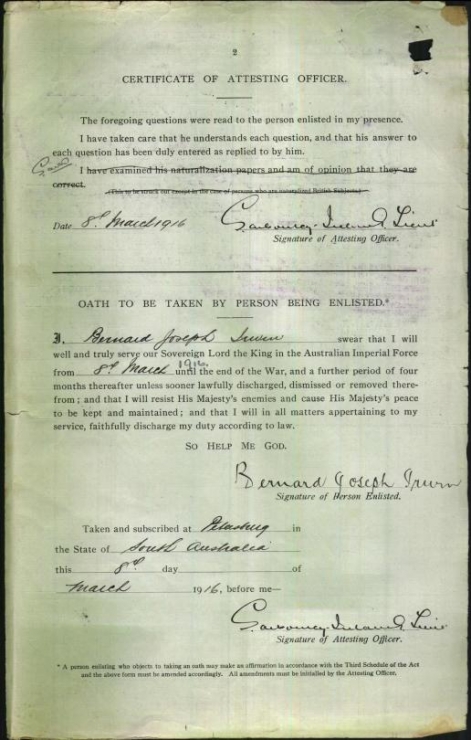 2
CERTIFICATE OF ATTESTING OFFICER.
The foregoing questions were read to the person enlisted in my presence.
I have taken care that he understands each question, and that his answer to
each question has been duly entered as replied to by him.
I have examined his naturalization papers and am of opinion that they are
correct.
(This to be struck out except in the case of persons who are naturalized British Subjects.)
Date 8th March 1916
Lieut
Signature of Attesting Officer.
OATH TO BE TAKEN BY PERSON BEING ENLISTED.*
I, Bernard Joseph Irwin swear that I will
well and truly serve our Sovereign Lord the King in the Australian Imperial Force
from 8th March 1916 until the end of the War, and a further period of four
months thereafter unless sooner lawfully discharged, dismissed or removed there-
from; and that I will resist His Majesty's enemies and cause His Majesty's peace
to be kept and maintained; and that I will in all matters appertaining to my
service, faithfully discharge my duty according to law.
SO HELP ME GOD.
Bernard Joseph Irwin
Signature of Person Enlisted.
Taken and subscribed at Petersburg in
the State of South Australia
this 8th day of
March 1916, before me—
Lieut
Signature of Attesting Officer.
* A person enlisting who objects to taking an oath may make an affirmation in accordance with the Third Schedule of the Act
and the above form must be amended accordingly. All amendments must be initialled by the Attesting Officer.